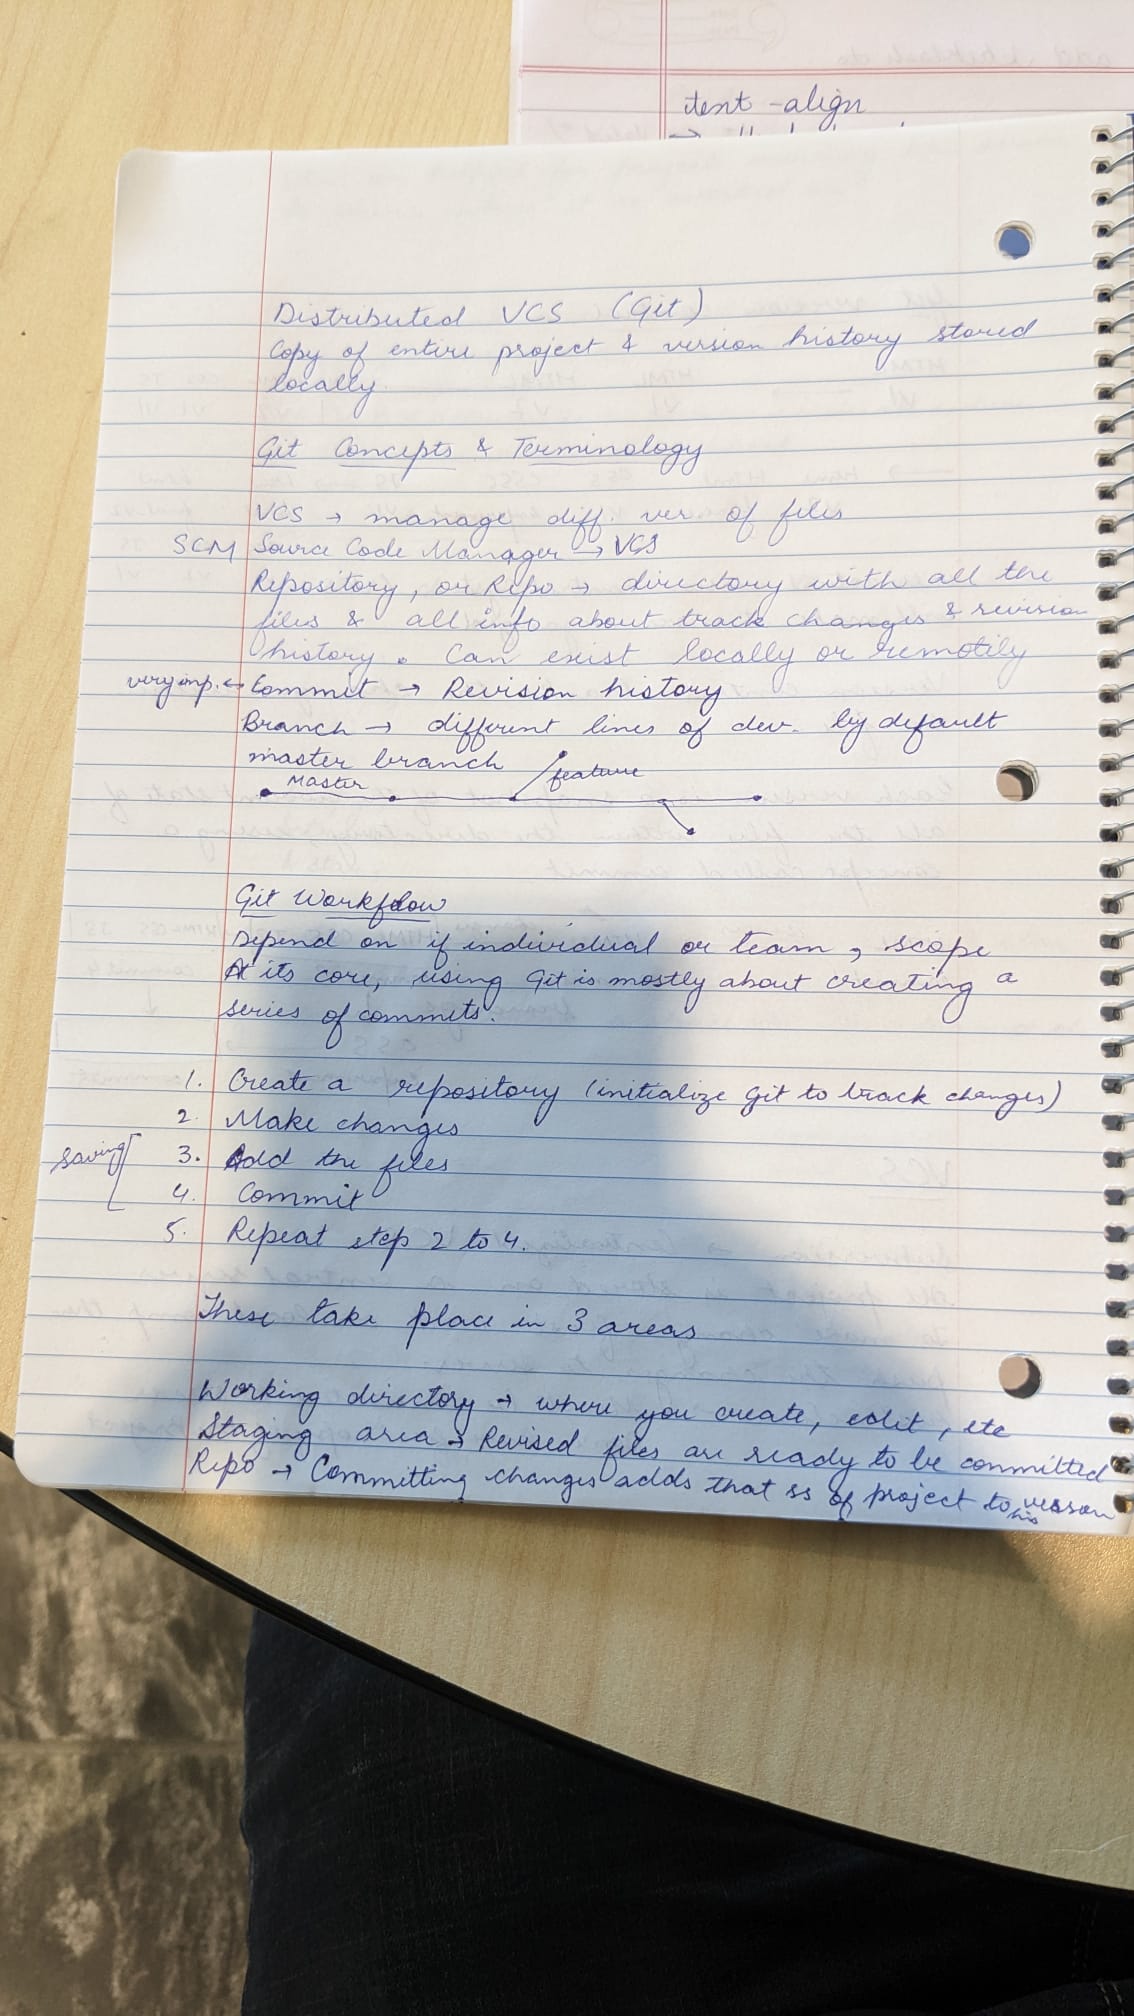 text-align
Distributed VCS (Git)
Copy of entire project & version history stored
locally.
Git Concepts & Terminology
VCS → manage diff. ver of files
SCM Source Code Manager → VCS
Repository, or Repo → directory with all the
files & all info about track changes & revision
history. Can exist locally or remotely
very imp. ↔ Commit → Revision history
Branch → different lines of dev. by default
master branch
Master feature
Git Workflow
Depend on if individual or team, scope
At its core, using Git is mostly about creating a
series of commits.
1. Create a repository (initialize git to track changes)
2. Make changes
saving 3. Add the files
4. Commit
5. Repeat step 2 to 4.
These take place in 3 areas
Working directory → where you create, edit, etc
Staging area → Revised files are ready to be committed
Repo → Committing changes adds that ss of project to version
his